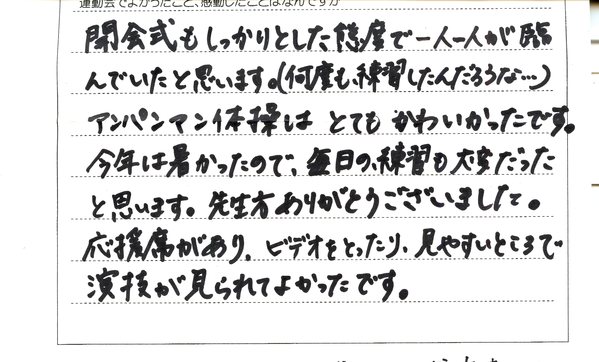 運動会でよかったこと、感動したことはなんですか
開会式もしっかりとした態度で一人一人が臨
んでいたと思います。(何度も、練習したんだろうな…)
アンパンマン体操は とても かわいかったです。
今年は暑かったので、毎日の、練習も大変だった
と思います。先生方ありがとうございました。
応援席があり、ビデオをとったり、見やすいところで
演技が見られてよかったです。